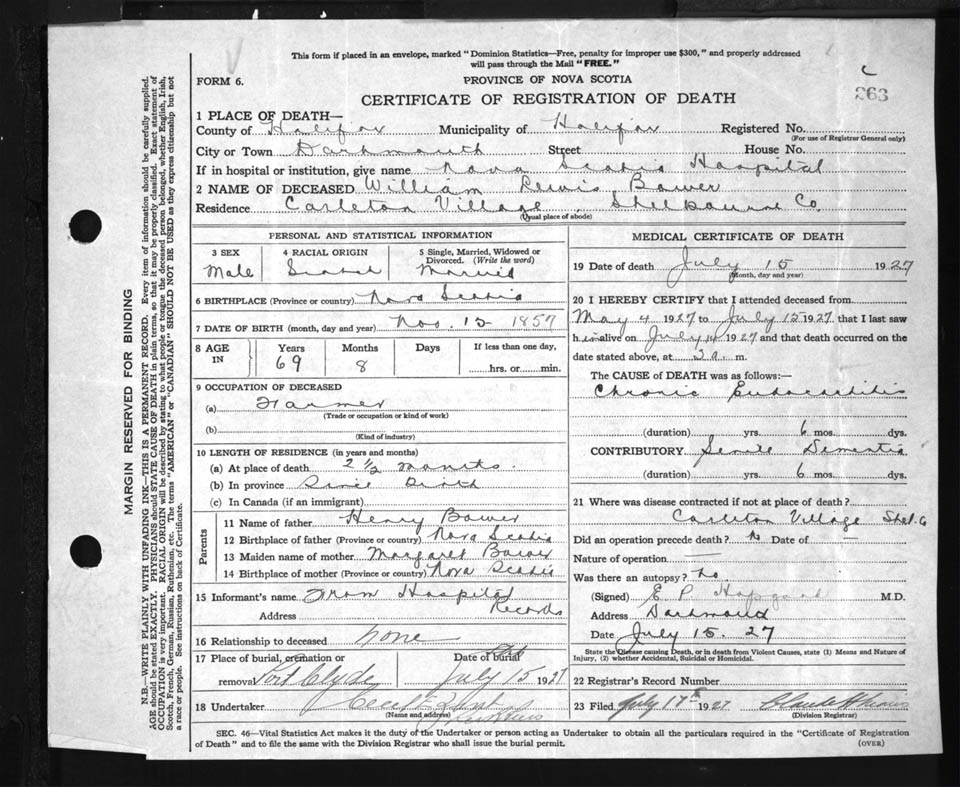 This form if placed in an envelope, marked "Dominion Statistics—Free, penalty for improper use $300," and properly addressed
will pass through the Mail "FREE."
FORM 6.
PROVINCE OF NOVA SCOTIA
C
363
CERTIFICATE OF REGISTRATION OF DEATH
1 PLACE OF DEATH—
County of Halifax Municipality of Halifax Registered No.
(For use of Registrar General only)
City or Town Dartmouth Street House No.
If in hospital or institution, give name Nova Scotia Hospital
2 NAME OF DECEASED William Lewis Bower
Residence Carleton Village Shelbourne Co.
(Usual place of abode)
PERSONAL AND STATISTICAL INFORMATION
3 SEX 4 RACIAL ORIGIN 5 Single, Married, Widowed or Divorced. (Write the word)
Male Scotch Married
6 BIRTHPLACE (Province or country) Nova Scotia
7 DATE OF BIRTH (month, day and year) Nov. 15 1857
8 AGE IN Years Months Days If less than one day,
69 8 hrs. or min.
9 OCCUPATION OF DECEASED
(a) Farmer
(Trade or occupation or kind of work)
(b)
(Kind of industry)
10 LENGTH OF RESIDENCE (in years and months)
(a) At place of death 2 1/2 months.
(b) In province Since Birth
(c) In Canada (if an immigrant)
Parents
11 Name of father Henry Bower
12 Birthplace of father (Province or country) Nova Scotia
13 Maiden name of mother Margaret Bower
14 Birthplace of mother (Province or country) Nova Scotia
15 Informant's name From Hospital
Address Records
16 Relationship to deceased none
17 Place of burial, cremation or Date of burial
removal Port Clyde July 15 1927
18 Undertaker
(Name and address)
MEDICAL CERTIFICATE OF DEATH
19 Date of death July 15 1927
(Month, day and year)
20 I HEREBY CERTIFY that I attended deceased from
May 4 1927 to July 15 1927 that I last saw
him alive on July 14 1927 and that death occurred on the
date stated above, at 3 a. m.
The CAUSE of DEATH was as follows:—
Chronic Endocarditis
(duration) yrs. 6 mos. dys.
CONTRIBUTORY Senile Dementia
(duration) yrs. 6 mos. dys.
21 Where was disease contracted if not at place of death?
Carleton Village Shel. Co
Did an operation precede death? No Date of —
Nature of operation —
Was there an autopsy? No
(Signed) E P Hopgood M.D.
Address Dartmouth
Date July 15. 27
State the Disease causing Death, or in death from Violent Causes, state (1) Means and Nature of
Injury, (2) whether Accidental, Suicidal or Homicidal.
22 Registrar's Record Number
23 Filed July 17th 1927
(Division Registrar)
SEC. 46—Vital Statistics Act makes it the duty of the Undertaker or person acting as Undertaker to obtain all the particulars required in the "Certificate of Registration
of Death" and to file the same with the Division Registrar who shall issue the burial permit.
(OVER)
MARGIN RESERVED FOR BINDING
N.B.—WRITE PLAINLY WITH UNFADING INK—THIS IS A PERMANENT RECORD. Every item of information should be carefully supplied.
AGE should be stated EXACTLY. PHYSICIANS should STATE CAUSE OF DEATH in plain terms, so that it may be properly classified. Exact statement of
OCCUPATION is very important. RACIAL ORIGIN will be described by stating to what people or tongue the deceased person belonged, whether English, Irish,
Scotch, French, German, Russian, Ruthenian, etc. The terms "AMERICAN" or "CANADIAN" SHOULD NOT BE USED as they express citizenship but not
a race or people. See instructions on back of Certificate.